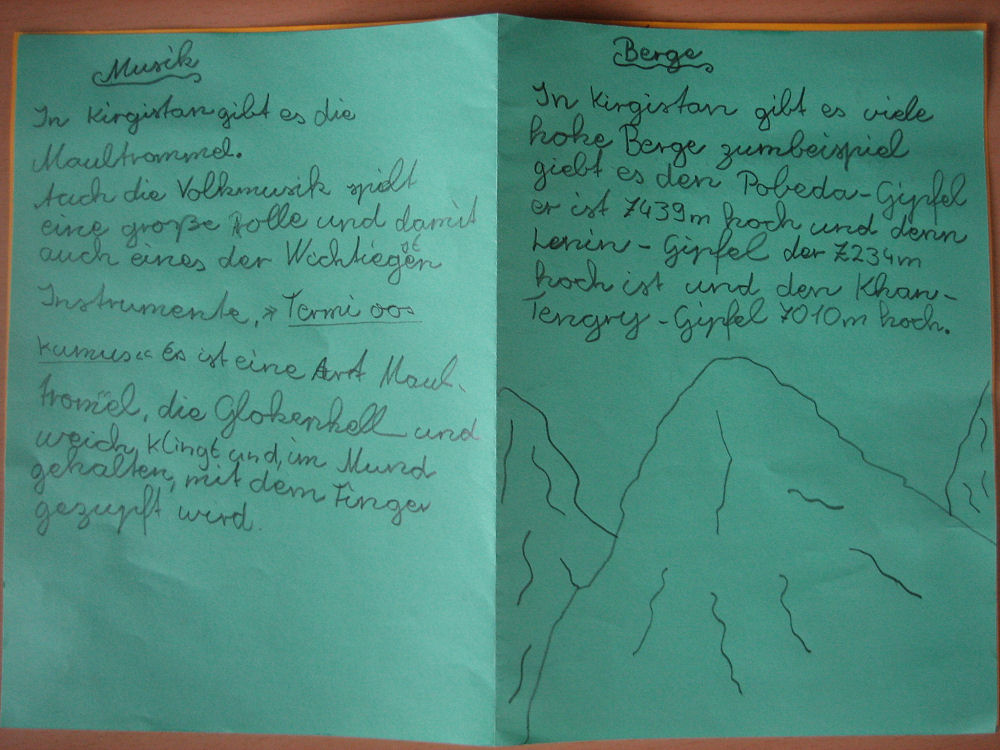 Musik
In Kirgistan gibt es die
Maultrommel.
Auch die Volkmusik spielt
eine große Rolle und damit
auch eines der Wichtiegen
Instrumente, »Termi oos
kumus« Es ist eine Art Maul-
trom̄el, die Glokenhell und
weich klingt und, im Mund
gehalten, mit dem Finger
gezupft wird.
Berge
In Kirgistan gibt es viele
hohe Berge zumbeispiel
giebt es den Pobeda-Gipfel
er ist 7439m hoch und denn
Lenin-Gipfel der 7234m
hoch ist und den Khan-
Tengry-Gipfel 7010m hoch.